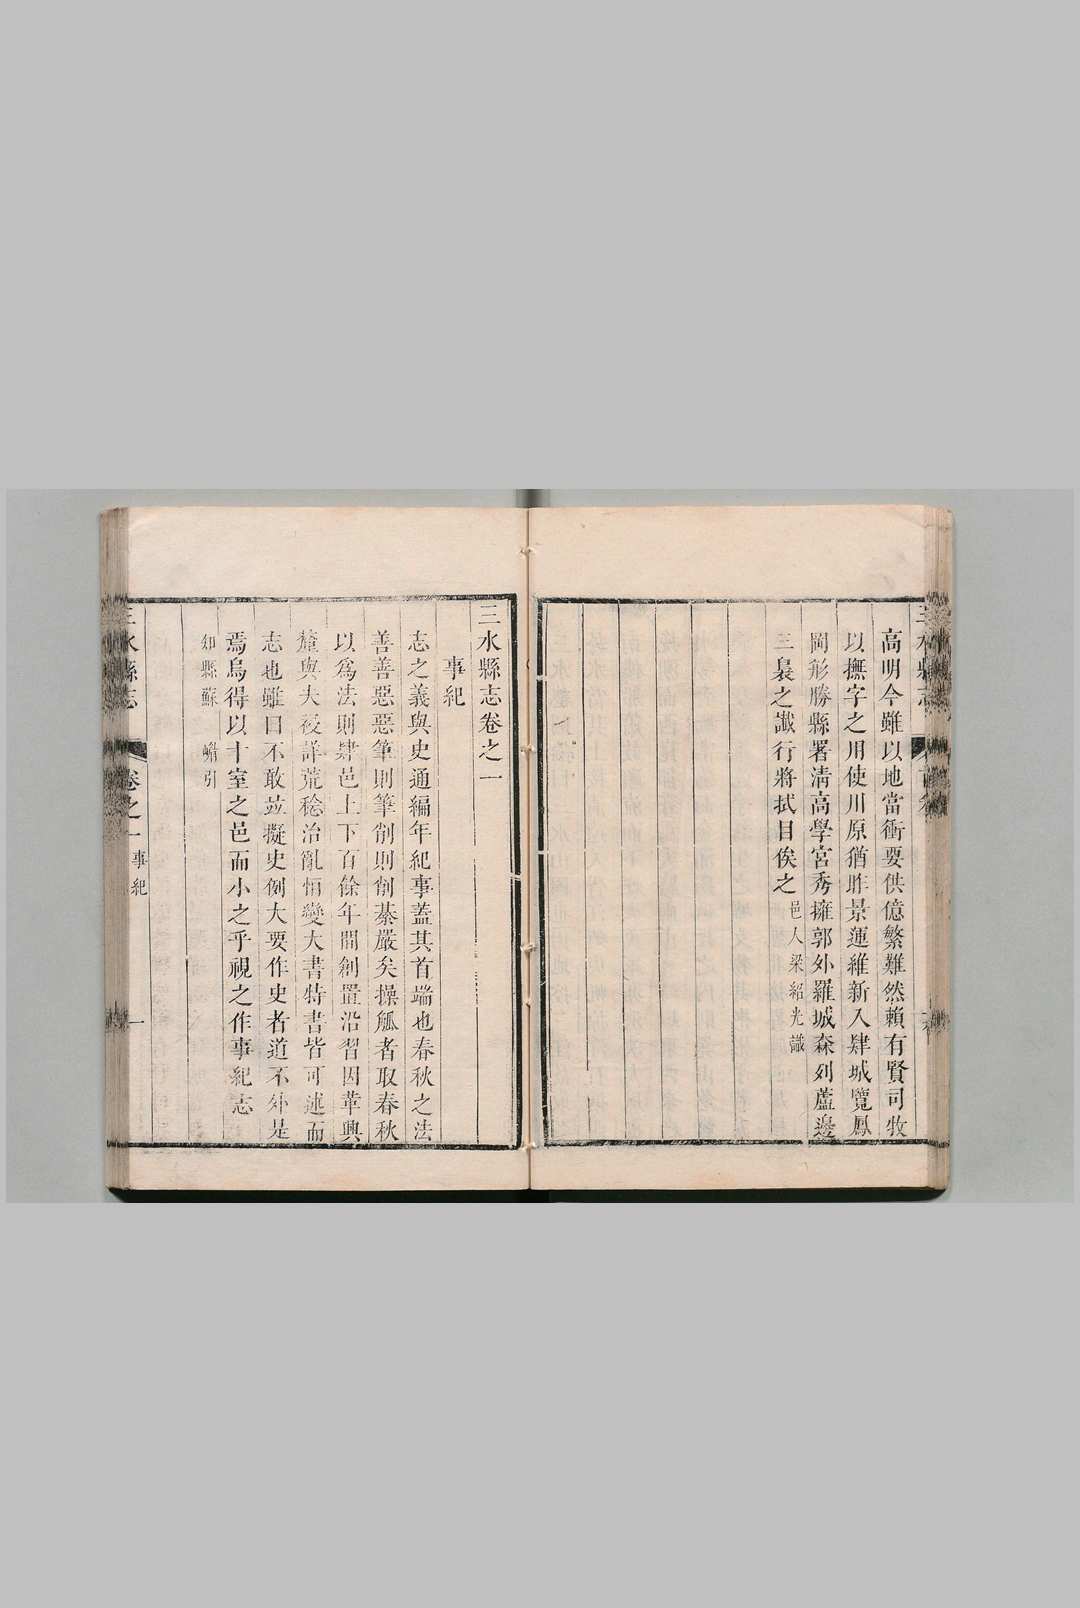 高明今雖以地當衝要供億繁難然賴有賢司牧
以撫字之用使川原猶昨景運維新入肆城覽鳳
岡形勝縣署淸高學宮秀擁郭外羅城森列蘆邊
三裊之讖行將拭目俟之 邑人梁紹光識
三水縣志卷之一
事紀
志之義與史通編年紀事蓋其首端也春秋之法
善善惡惡筆則筆削則削綦嚴矣操觚者取春秋
以爲法則肆邑上下百餘年間創置沿習因革興
釐與夫祲詳荒稔治亂恒變大書特書皆可述而
志也雖曰不敢竝擬史例大要作史者道不外是
焉烏得以十室之邑而小之乎視之作事紀志
知縣蘇 嶓引
三水縣志 卷之一 事紀 一